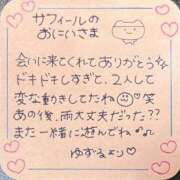 サフィールの
おにいさま
会いに来てくれてありがとう
ドキドキしすぎて、2人して
変な動きしてたね 笑
あの後、雨大丈夫だった??
また一緒に遊んでね♪
ゆずるより♡